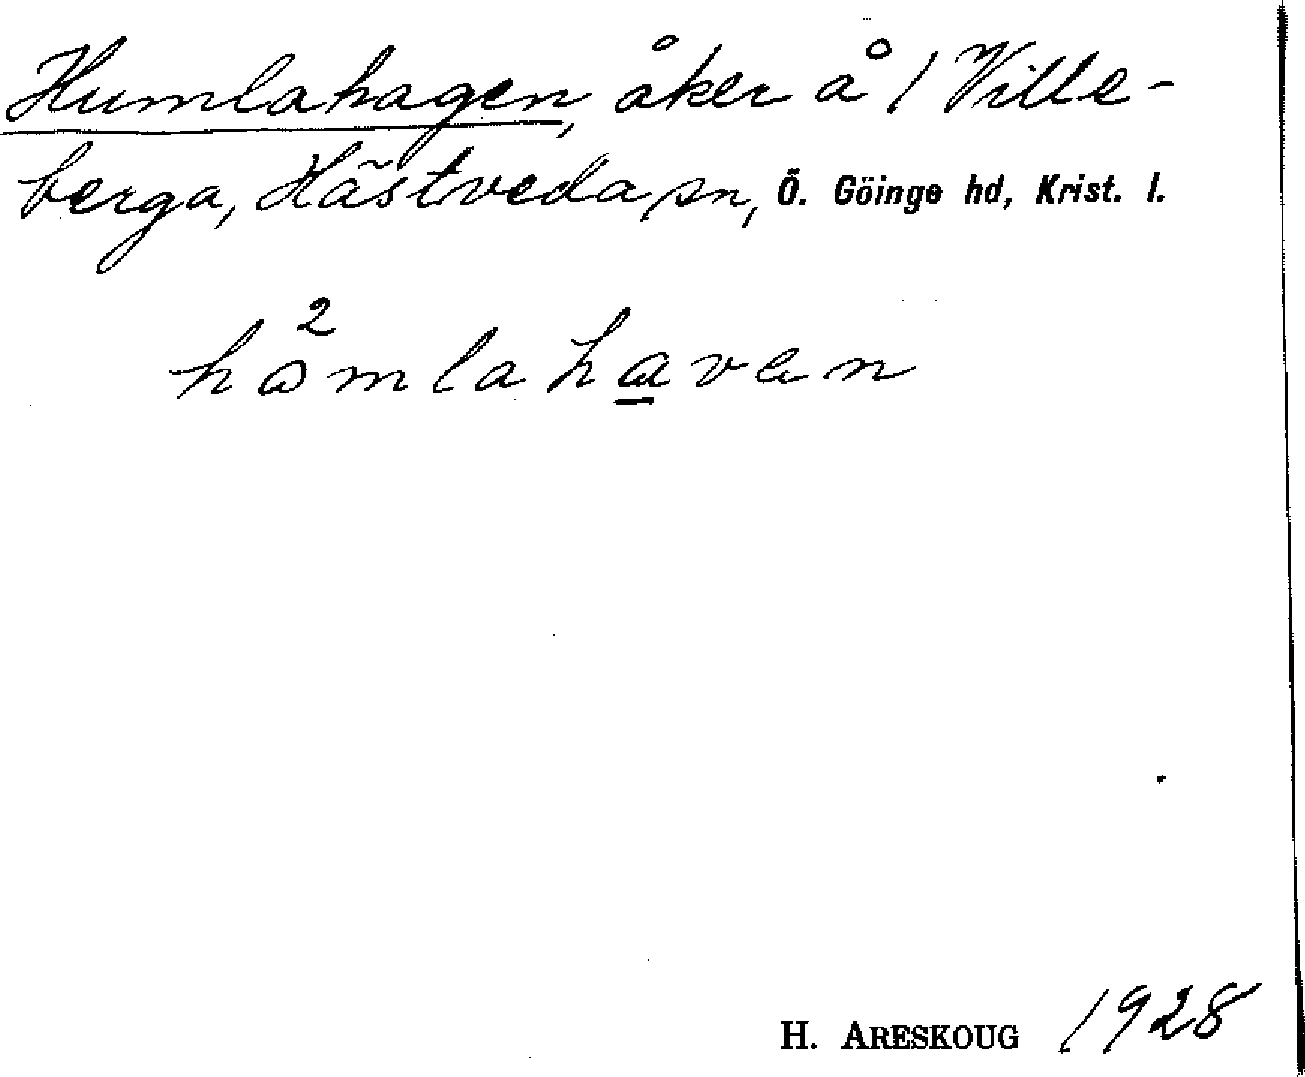 Humlahagen, åker å 1 Ville-
berga, Hästveda sn, Ö. Göinge hd, Krist. l.
hå²mlahavan
H. ARESKOUG 1928